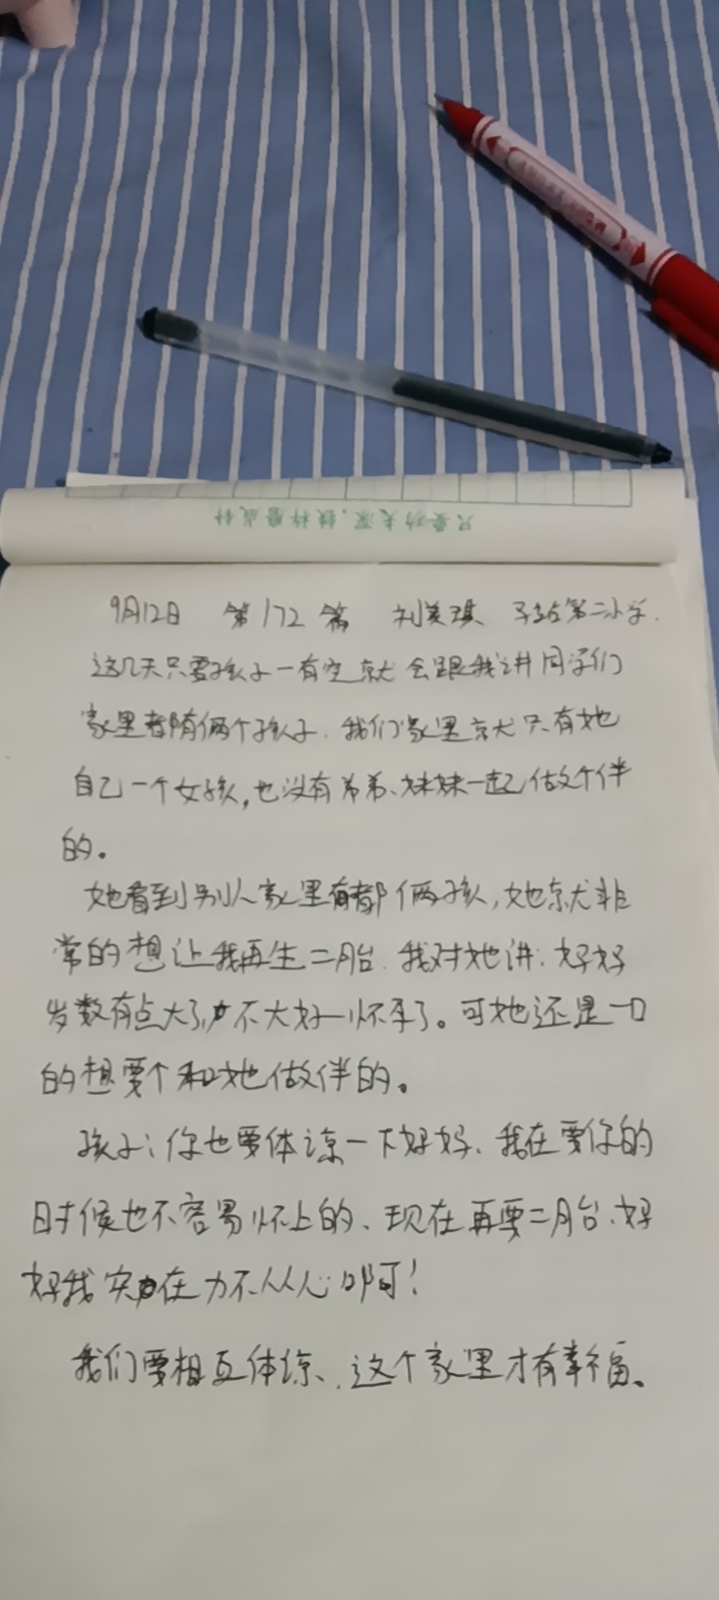 只要功夫深,铁杵磨成针
9月12日 第172篇 刘美琪 第二小学.
这几天只要孩子一有空就会跟我讲同学们
家里都有俩个孩子.我们家里就只有她
自己一个女孩,也没有弟弟、妹妹一起做个伴
的。
她看到别人家里有都俩孩,她就非
常的想让我再生二胎.我对她讲:妈妈
岁数有点大了,不大好怀孕了。可她还是一口
的想要个和她做伴的。
孩子:你也要体谅一下妈妈、我在要你的
时候也不容易怀上的、现在再要二胎、妈
妈我实在力不从心啊!
我们要相互体谅、这个家里才有幸福、